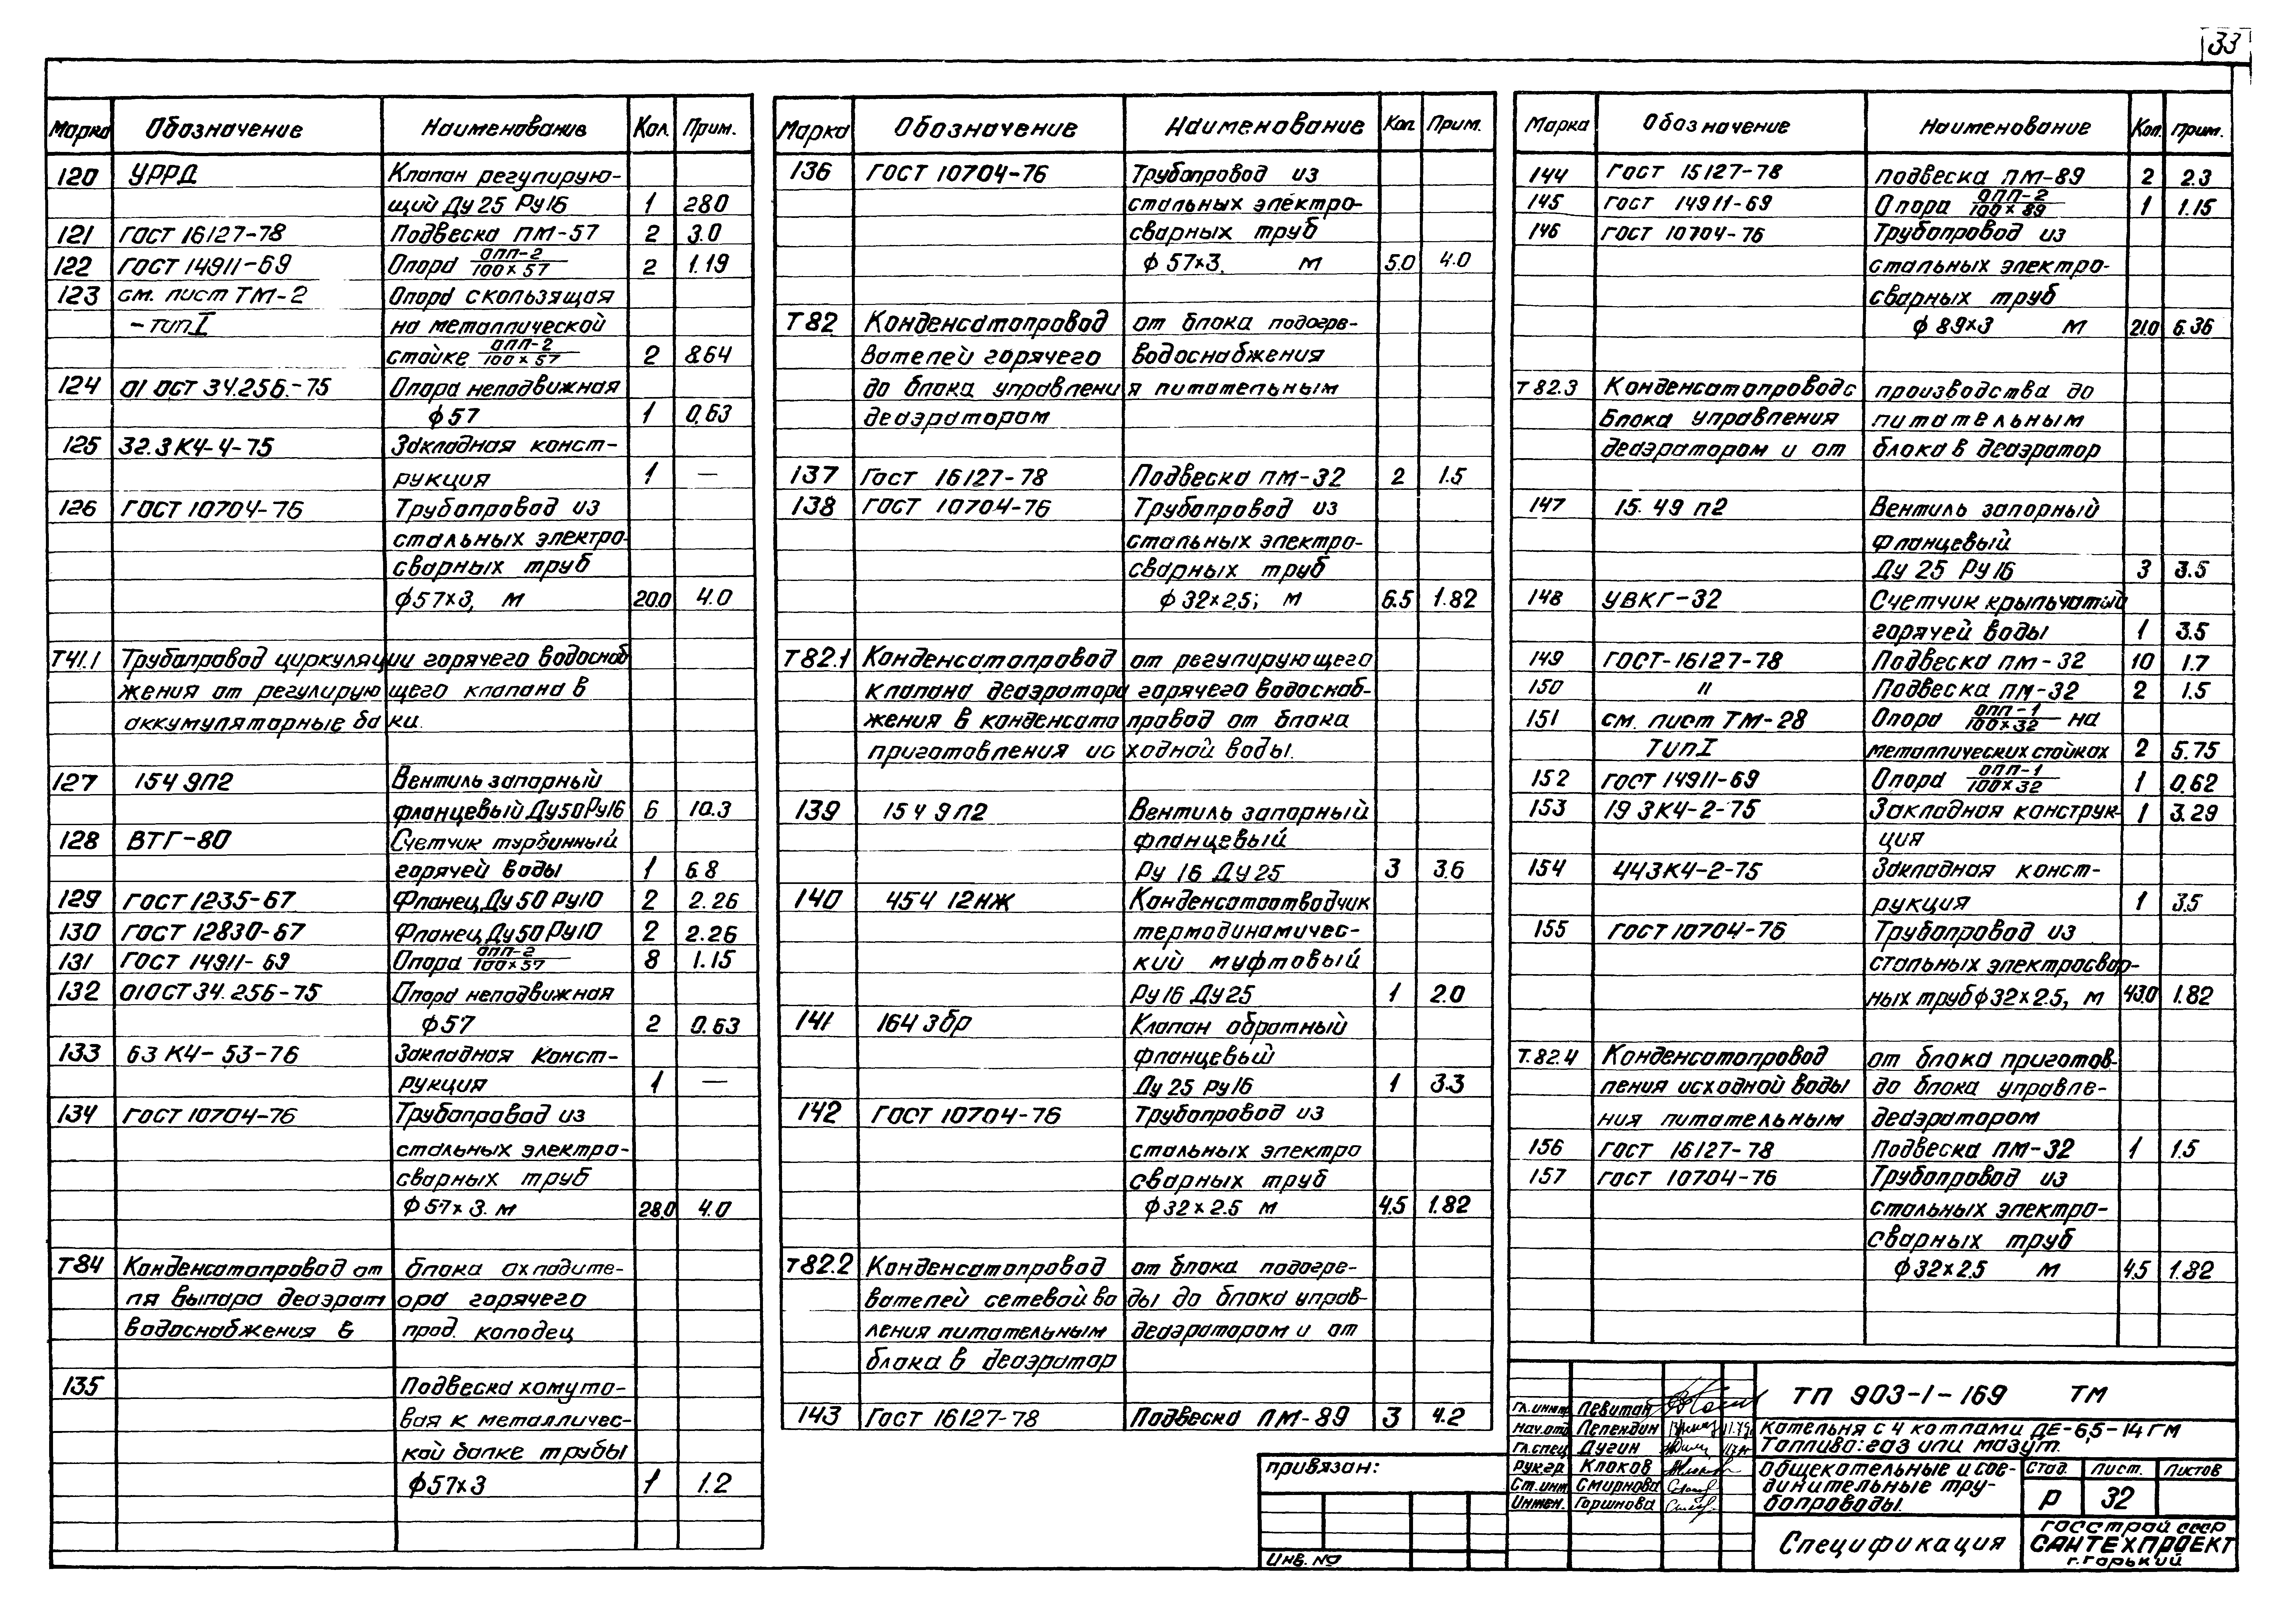 33
Марка Обозначение Наименование Кол. Прим.
120 УРРД Клапан регулирую-
щий Ду 25 Ру16 1 280
121 ГОСТ 16127-78 Подвеска ПМ-57 2 3.0
122 ГОСТ 14911-69 Опора ОПП-2/100×57 2 1.19
123 см. лист ТМ-2 Опора скользящая
-тип I на металлической
стойке ОПП-2/100×57 2 8.64
124 01 ОСТ 34.256.-75 Опора неподвижная
ф57 1 0.63
125 32.3К4-4-75 Закладная конст-
рукция 1 —
126 ГОСТ 10704-76 Трубопровод из
стальных электро-
сварных труб
ф57×3, м 20.0 4.0
Т41.1 Трубопровод циркуляции горячего водоснаб
жения от регулирующего клапана в
аккумуляторные баки.
127 15ч 9п2 Вентиль запорный
фланцевый Ду50 Ру16 6 10.3
128 ВТГ-80 Счетчик турбинный
горячей воды 1 6.8
129 ГОСТ 1235-67 Фланец Ду 50 Ру10 2 2.26
130 ГОСТ 12830-67 Фланец Ду50 Ру10 2 2.26
131 ГОСТ 14911-69 Опора ОПП-2/100×57 8 1.15
132 01ОСТ 34.256-75 Опора неподвижная
ф57 2 0.63
133 63 К4-53-76 Закладная конст-
рукция 1 —
134 ГОСТ 10704-76 Трубопровод из
стальных электро-
сварных труб
ф57×3. м 28.0 4.0
Т84 Конденсатопровод от блока охладите-
ля выпара деаэратора горячего
водоснабжения в прод. колодец
135 Подвеска хомуто-
вая к металличес-
кой балке трубы
ф57×3 1 1.2
Марка Обозначение Наименование Кол Прим.
136 ГОСТ 10704-76 Трубопровод из
стальных электро-
сварных труб
ф 57×3, м 5.0 4.0
Т82 Конденсатопровод от блока подогре-
вателей горячего водоснабжения
до блока управления питательным
деаэратором
137 ГОСТ 16127-78 Подвеска ПМ-32 2 1.5
138 ГОСТ 10704-76 Трубопровод из
стальных электро-
сварных труб
ф 32×2,5; м 6.5 1.82
Т82.1 Конденсатопровод от регулирующего
клапана деаэратора горячего водоснаб-
жения в конденсатопровод от блока
приготовления исходной воды.
139 15ч 9п2 Вентиль запорный
фланцевый
Ру 16 Ду 25 3 3.6
140 45ч 12нж Конденсатоотводчик
термодинамичес-
кий муфтовый
Ру16 Ду25 1 2.0
141 16ч 3бр Клапан обратный
фланцевый
Ду 25 Ру16 1 3.3
142 ГОСТ 10704-76 Трубопровод из
стальных электро
сварных труб
ф32×2.5 м 4.5 1.82
Т82.2 Конденсатопровод от блока подогре-
вателей сетевой воды до блока управ-
ления питательным деаэратором и от
блока в деаэратор
143 ГОСТ 16127-78 Подвеска ПМ-89 3 4.2
Марка Обозначение Наименование Кол. Прим.
144 ГОСТ 15127-78 Подвеска ПМ-89 2 2.3
145 ГОСТ 14911-69 Опора ОПП-2/100×89 1 1.15
146 ГОСТ 10704-76 Трубопровод из
стальных электро-
сварных труб
ф 89×3 м 21.0 6.36
Т82.3 Конденсатопровод с производства до
блока управления питательным
деаэратором и от блока в деаэратор
147 15.49 п2 Вентиль запорный
фланцевый
Ду 25 Ру16 3 3.5
148 УВКГ-32 Счетчик крыльчатый
горячей воды 1 3.5
149 ГОСТ-16127-78 Подвеска ПМ-32 10 1.7
150 " Подвеска ПМ-32 2 1.5
151 см. лист ТМ-28 Опора ОПП-1/100×32 на
Тип I металлических стойках 2 5.75
152 ГОСТ 14911-69 Опора ОПП-1/100×32 1 0.62
153 19 3К4-2-75 Закладная конструк- 1 3.29
ция
154 443К4-2-75 Закладная конст-
рукция 1 3.5
155 ГОСТ 10704-76 Трубопровод из
стальных электросвар-
ных труб ф32×2.5, м 43.0 1.82
Т.82.4 Конденсатопровод от блока приготов-
ления исходной воды до блока управле-
ния питательным деаэратором
156 ГОСТ 16127-78 Подвеска ПМ-32 1 1.5
157 ГОСТ 10704-76 Трубопровод из
стальных электро-
сварных труб
ф32×2.5 м 4.5 1.82
привязан:
Инв. №
Гл.инж. Левитан
Нач.отд Пелендин
Гл.спец Дугин
Рук.гр. Клоков
Ст.инж Смирнова
Инжен. Горшнова
ТП 903-1-169 ТМ
Котельня с 4 котлами ДЕ-6,5-14ГМ
Топливо: газ или мазут.
Общекотельные и сое-
динительные тру-
бопроводы.
Стад. Лист. Листов
Р 32
Спецификация
Госстрой СССР
САНТЕХПРОЕКТ
г.Горький